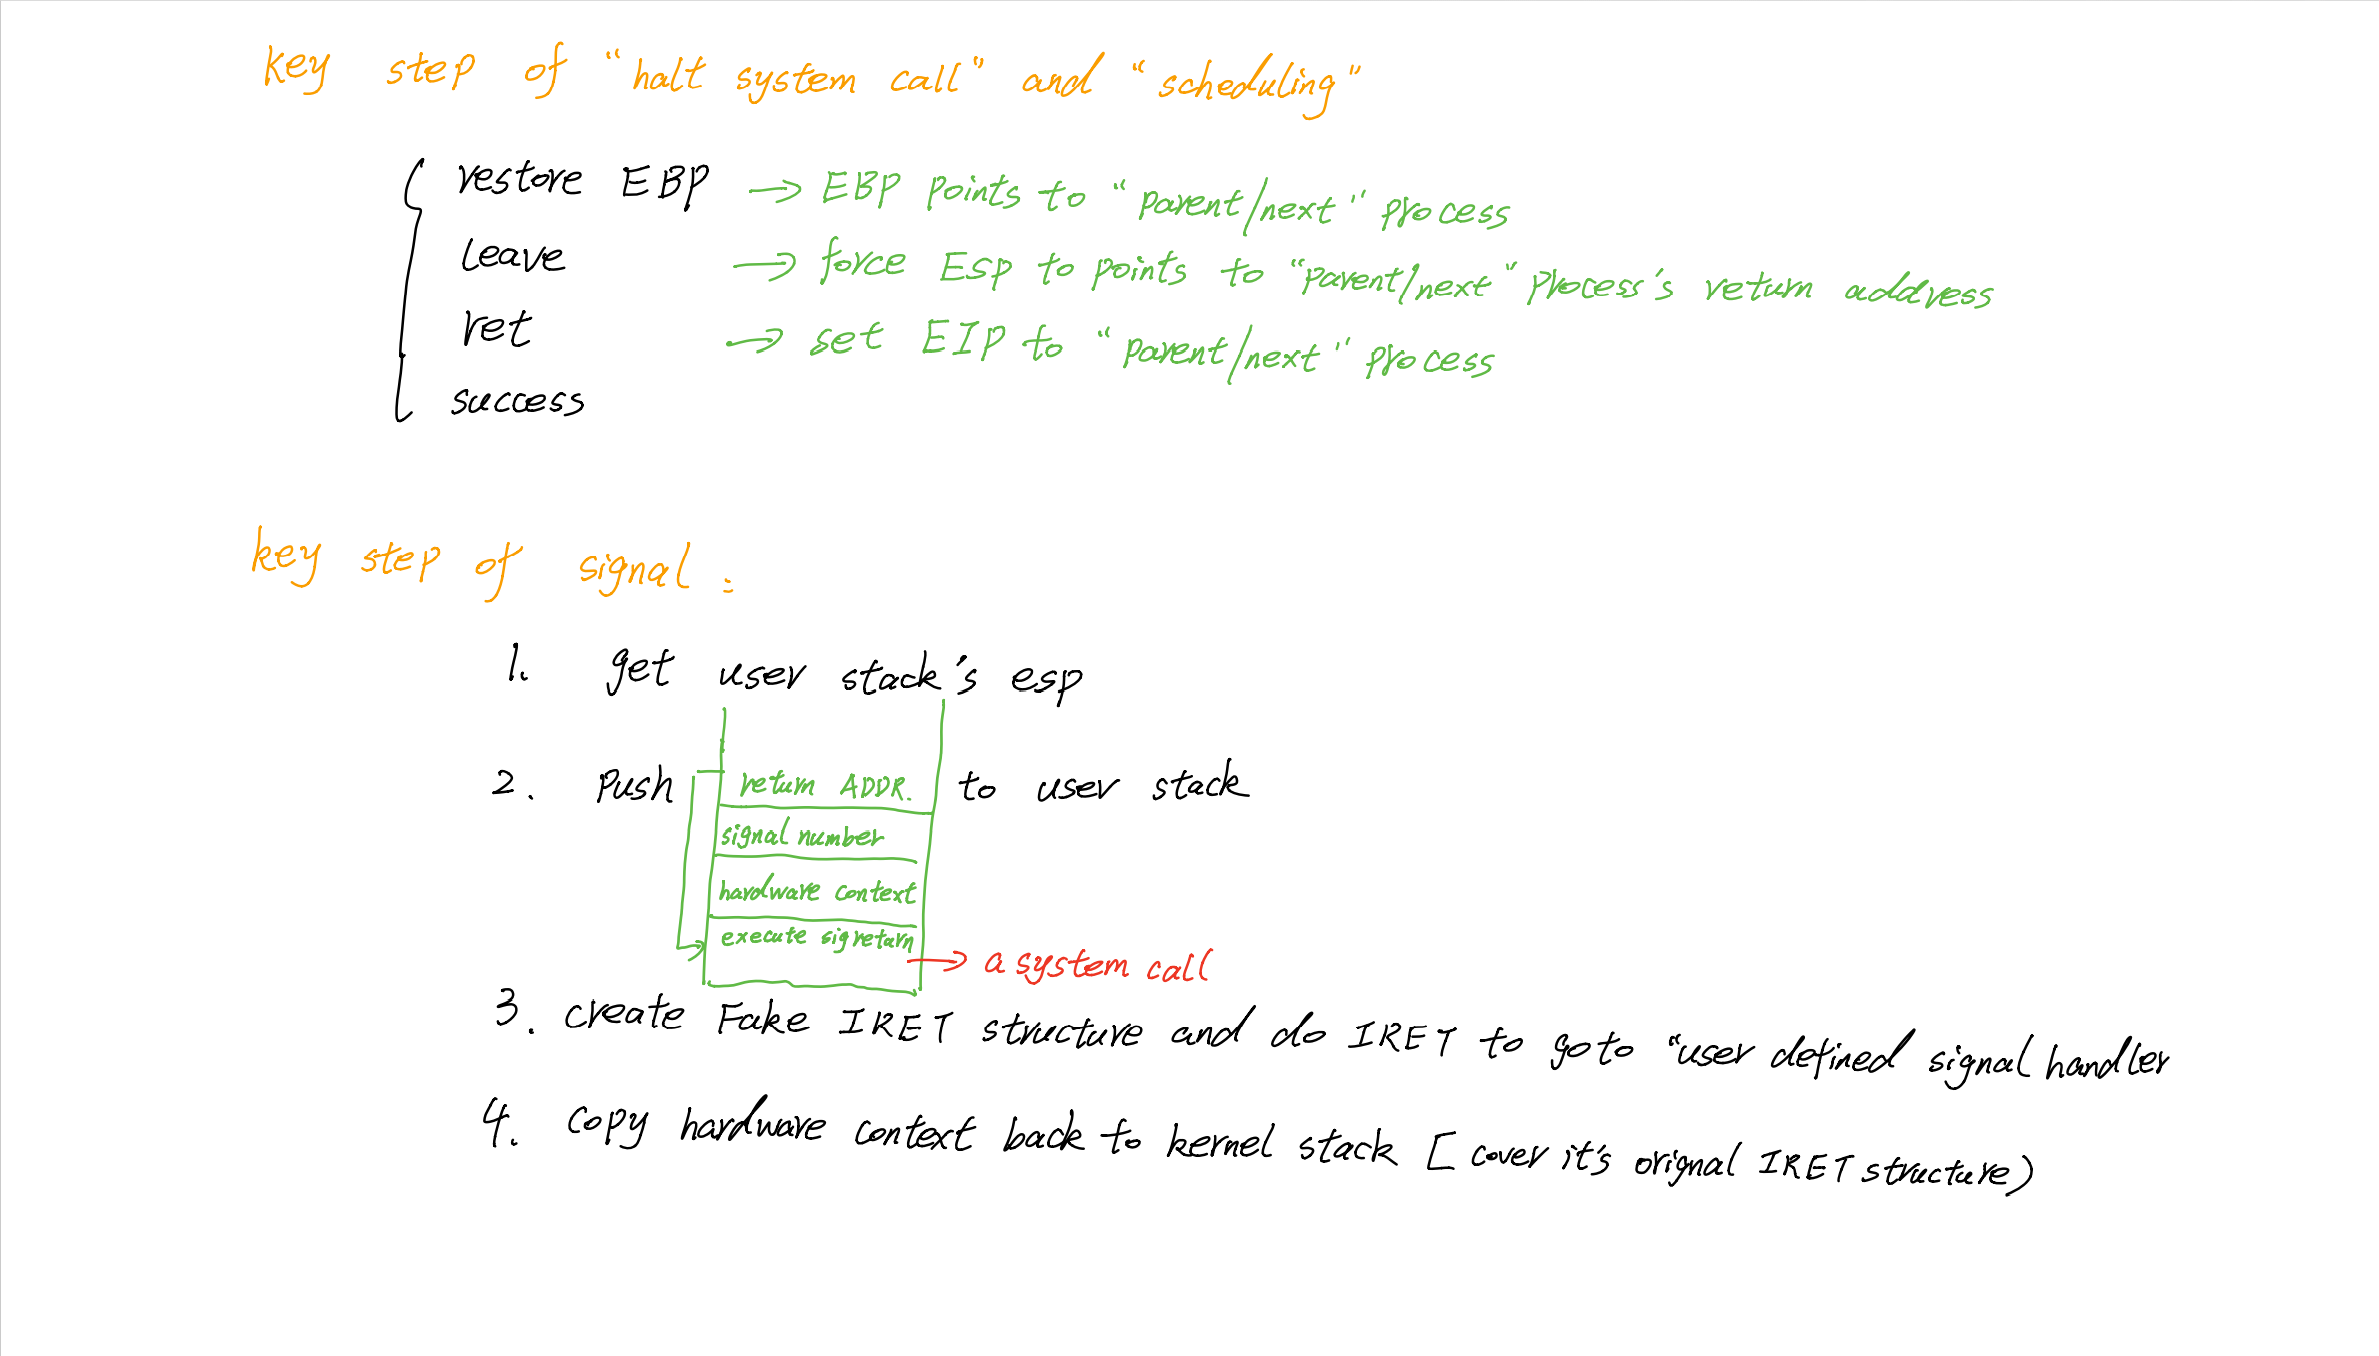 key step of "halt system call" and "scheduling"
restore EBP → EBP points to "parent/next" process
leave → force Esp to points to "parent/next" process's return address
ret → set EIP to "parent/next" process
success
key step of signal:
1. get user stack's esp
2. Push return ADDR. to user stack
signal number
hardware context
execute sigreturn → a system call
3. create Fake IRET structure and do IRET to goto "user defined signal handler
4. copy hardware context back to kernel stack [cover it's orignal IRET structure)